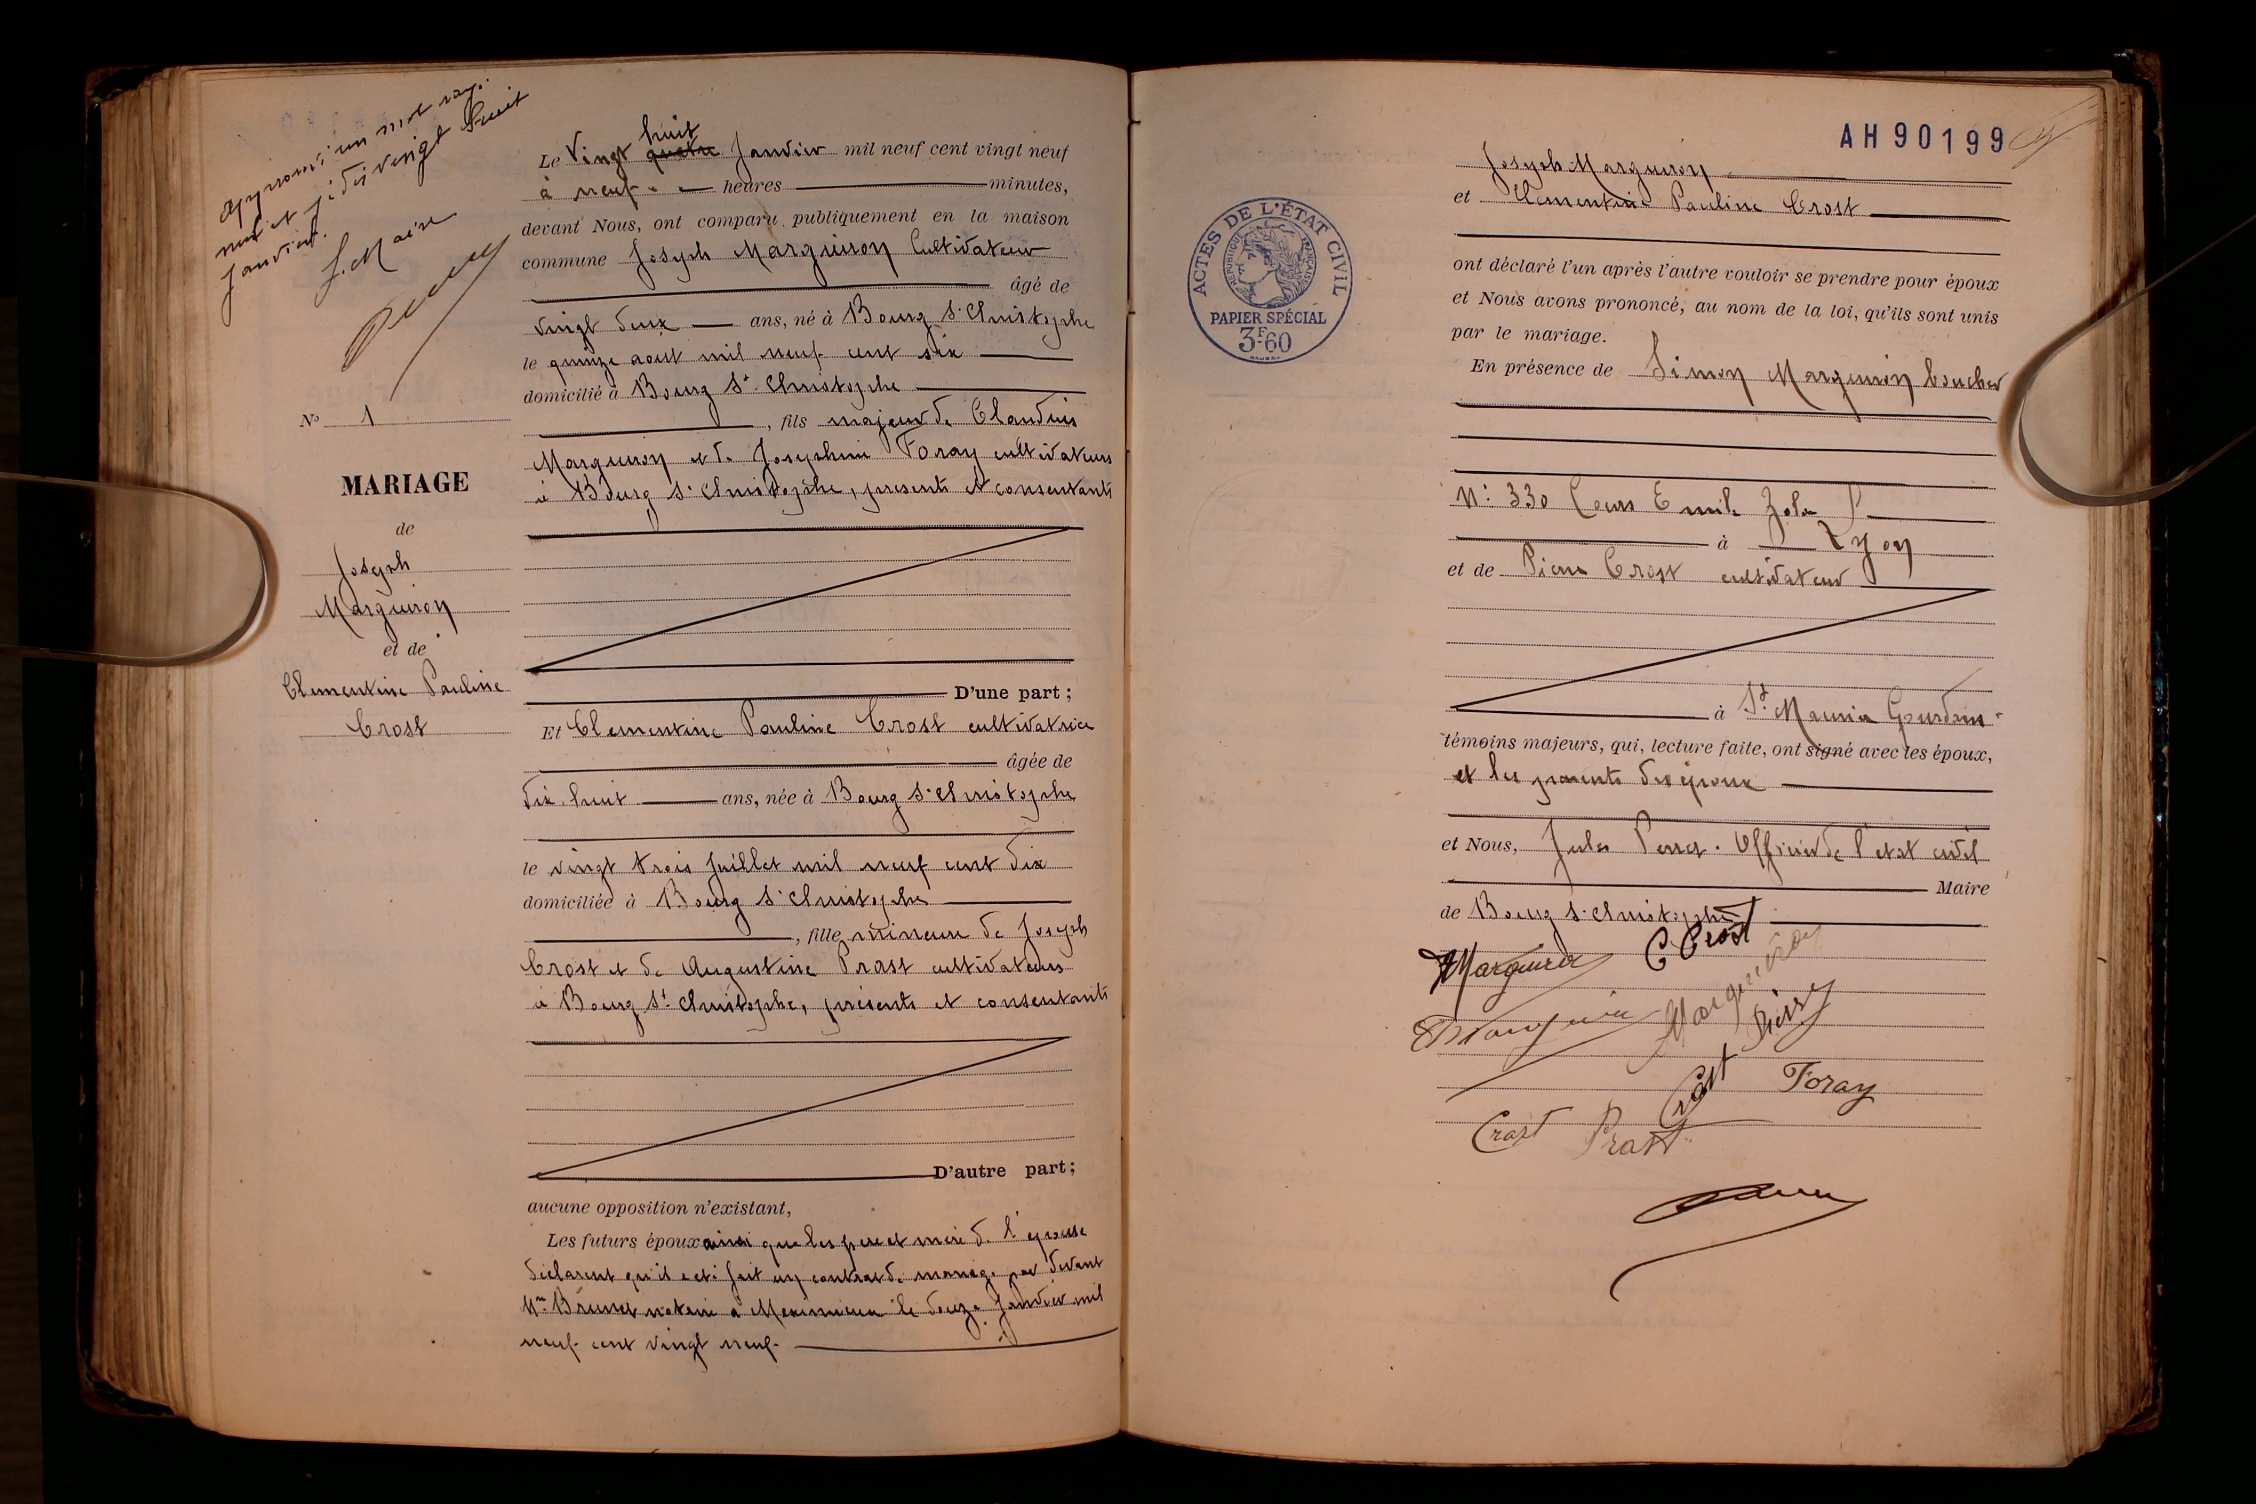 approuvé un mot rayé
nul et
janvier.
Le Maire
N° 1
MARIAGE
de
Joseph
Marguiron
et de
Clementine Pauline
Crost
Le Vingt quatre huit Janvier mil neuf cent vingt neuf
à neuf heures minutes,
devant Nous, ont comparu publiquement en la maison
commune Joseph Marguiron Cultivateur
âgé de
vingt deux ans, né à Bourg St Christophe
le quinze aout mil neuf cent six
domicilié à Bourg St Christophe
, fils majeur de Claudius
Marguiron et de Josephine Foray cultivateurs
à Bourg St Christophe, presents et consentants
D'une part ;
Et Clementine Pauline Crost cultivatrice
âgée de
dix huit ans, née à Bourg St Christophe
le vingt trois Juillet mil neuf cent dix
domiciliée à Bourg St Christophe
, fille mineure de Joseph
Crost et de Augustine Prost cultivateurs
à Bourg St Christophe, présents et consentants
D'autre part ;
aucune opposition n'existant,
Les futurs époux ainsi que les pere et mère de l'epouse
déclarent qu'il a eté fait un contrat de mariage par devant
Me Brunet notaire à Meximieux le douze Janvier mil
neuf cent vingt neuf
ACTES DE L'ÉTAT CIVIL
RÉPUBLIQUE FRANÇAISE
PAPIER SPÉCIAL
3F60
AH90199
Joseph Marguiron
et Clementine Pauline Crost
ont déclaré l'un après l'autre vouloir se prendre pour époux
et Nous avons prononcé, au nom de la loi, qu'ils sont unis
par le mariage.
En présence de Simon Marguiron boucher
N° 330 Cours Emile Zola
à Lyon
et de Pierre Crost cultivateur
à St Maurice Gourdans
témoins majeurs, qui, lecture faite, ont signé avec les époux,
et les parents des époux
et Nous, Jules Perret. Officier de l'etat civil
Maire
de Bourg St Christophe
Marguiron C Crost
Marguiron
Foray
Crost
Crost Prost